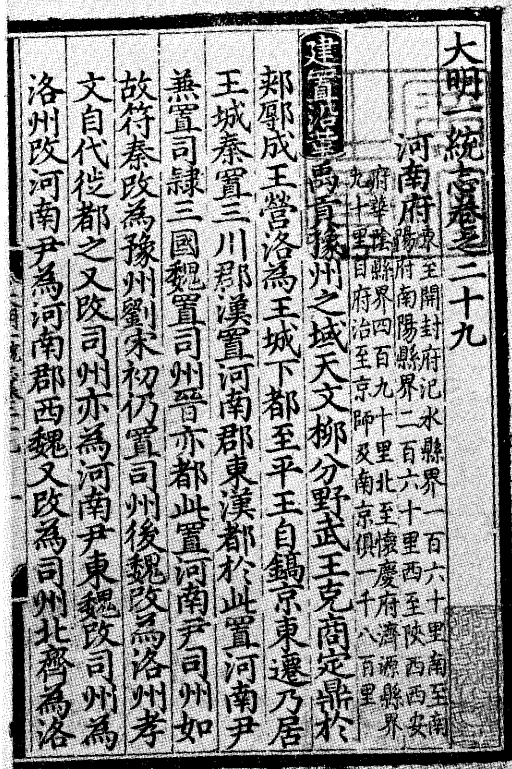 大明一統志卷之二十九
河南府東至開封府汜水縣界一百六十里南至南
陽府南陽縣界二百六十里西至陝西西安
府華陰縣界四百九十里北至懷慶府濟源縣界
九十里自府治至京師及南京俱一千八百里
建置沿革禹貢豫州之域天文柳分野武王克商定鼎於
郟鄏成王營洛為王城下都至平王自鎬京東遷乃居
王城秦置三川郡漢置河南郡東漢都於此置河南尹
兼置司隸三國魏置司州晉亦都此置河南尹司州如
故符秦改為豫州劉宋初仍置司州後魏改為洛州孝
文自代徙都之又改司州亦為河南尹東魏改司州為
洛州改河南尹為河南郡西魏又改為司州北齊為洛